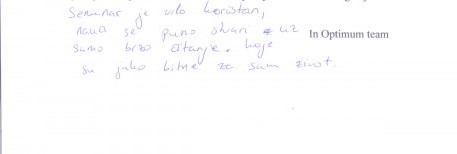 Seminar je vrlo koristan,
nauči se puno stvari uz
samo brzo čitanje. koje
su jako bitne za sam život.
In Optimum team